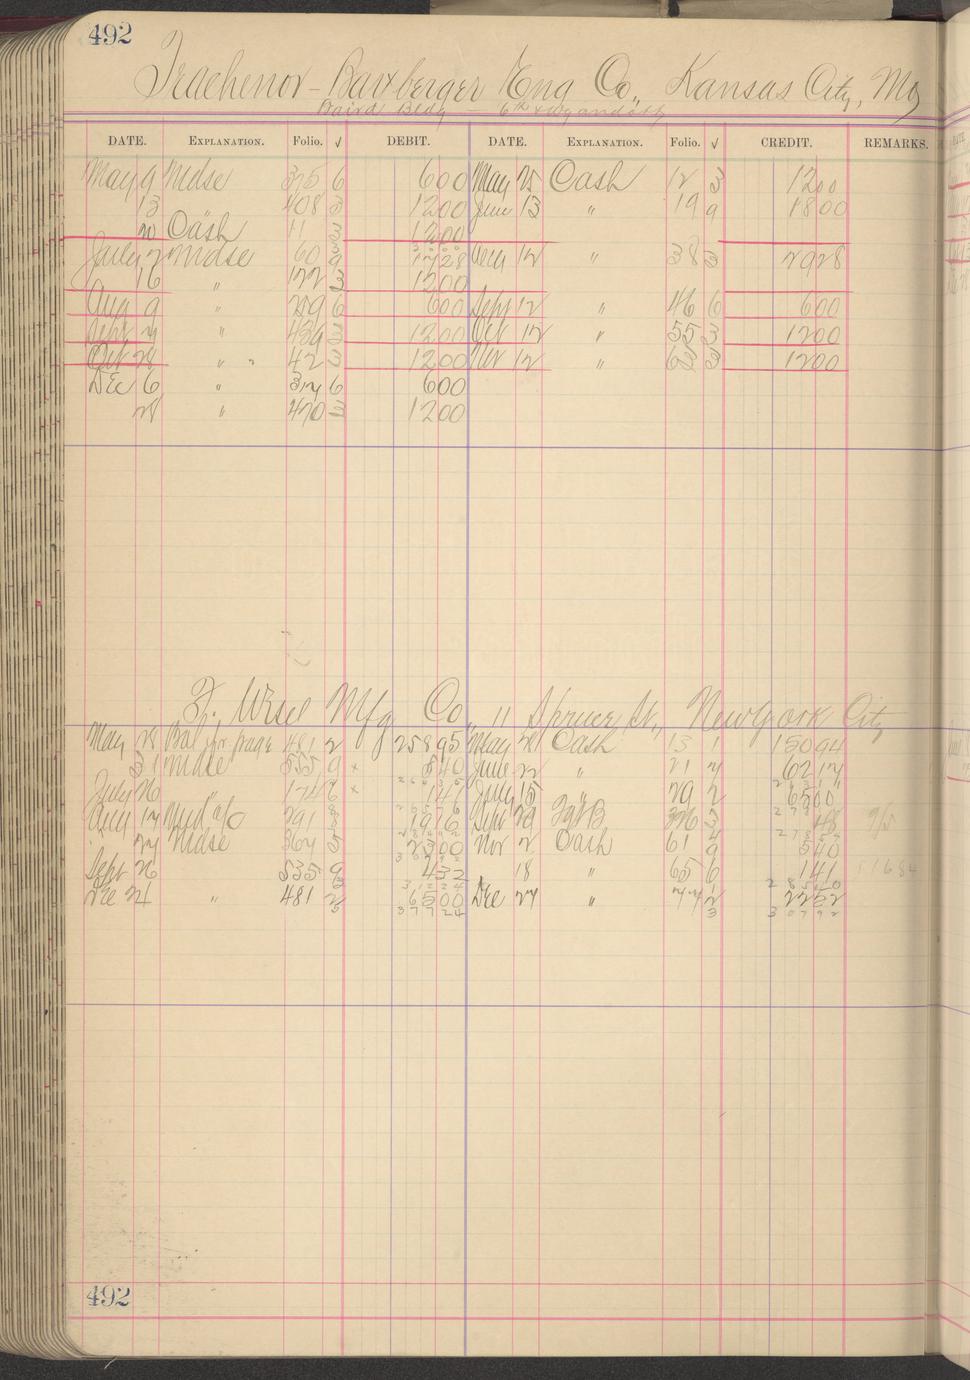 492
Teachenor-Bartberger Eng Co., Kansas City, Mo
Baird Bldg - 6th & Wyandotte
DATE. EXPLANATION. Folio. √ DEBIT. DATE. EXPLANATION. Folio. √ CREDIT. REMARKS.
May 9 Mdse 375 6 600 May 25 Cash 12 3 1200
13 408 3 1200 June 13 " 19 9 1800
20 Cash 11 3 1200
July 7 Mdse 60 9 1728 Aug 12 " 38 3 2928
16 " 122 3 1200
Aug 9 " 259 6 600 Sept 12 " 46 6 600
Sept 7 " 439 3 1200 Oct 12 " 55 3 1200
Oct 28 " " 42 3 1200 Nov 12 " 62 3 1200
Dec 6 " 317 6 600
28 " 470 3 1200
F. Wesel Mfg Co., 11 Spruce St., New York City
May 28 Bal fr page 481 2 25895 May 28 Cash 13 1 15094
31 Mdse 555 9 x 540 June 22 " 21 7 6217
July 26 " 174 6 x 141 July 15 " 29 2 6500
Aug 17 Mdse a/c 291 8 1916 Sept 29 376 3 48
27 Mdse 364 5 2300 Nov 2 Cash 61 9 540
Sept 26 535 9 432 18 " 65 6 141
Dec 24 " 481 2 6500 Dec 27 " 77 2 2252
37724 30792
492